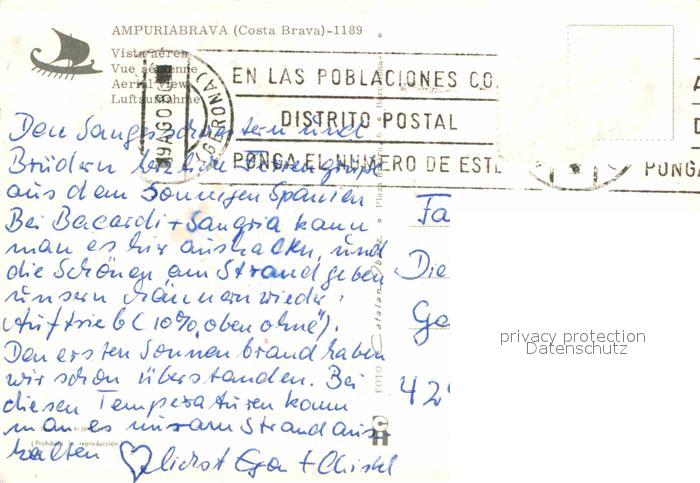 AMPURIABRAVA (Costa Brava)-1189
Vista aérea
Vue aérienne
Aerial view
Luftaufnahme
EN LAS POBLACIONES CO
DISTRITO POSTAL
PONGA EL NUMERO DE ESTE
(GERONA)
9AGO8
A
D
PONGA
Den Sangesschwestern und
Brüdern herzliche Feriengrüße
aus dem sonnigen Spanien
Bei Bacardi + Sangria kann
man es hir aushalten, und
die Schönen am Strand geben
unsern Männern wieder
Auftrieb (10% "oben ohne").
Den ersten Sonnenbrand haben
wir schon überstanden. Bei
diesen Temperaturen kann
man es nur am Strand aus
halten
lichst Egon + Christl
(Prohibida la reproducción)
FOTO
Fa
Die
Ge
42
privacy protection
Datenschutz